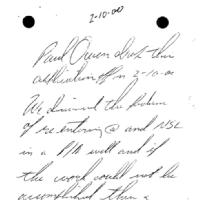 2-10-00
Paul Owen drops this
application off on 2-10-00
We discussed the failure
of re entering @ and NSL
in a P/A well and if
the work could not be
accomplished then a